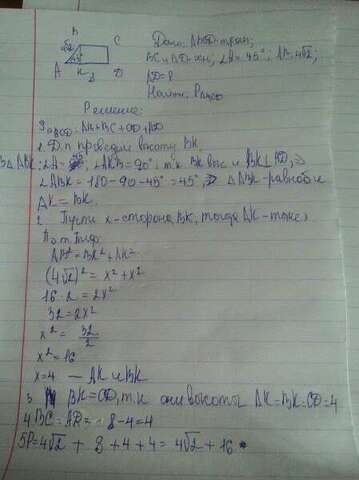 B
C
4√2
45°
A K D
Дано: ABCD-трап.;
BC и AD-осн; ∠A=45°; AB=4√2;
AD=8
Найти: PABCD
Решение:
PABCD=AB+BC+CD+AD
1. Д.п проведём высоту BK.
В ∆ABK: ∠A=45°, ∠AKB=90°, т.к BK выс и BK⊥AD, ⇒
∠ABK=180-90-45°=45° ⇒ ∆ABK-равноб и
AK=BK.
2. Пусть x-сторона BK, тогда AK-тоже x
По т. Пиф:
AB²=BK²+AK²
(4√2)²=x²+x²
16·2=2x²
32=2x²
x²=32/2
x²=16
x=4 — AK и BK
3 BK=CD, т.к они высоты AK=BK=CD=4
4 BC= 8-4=4
5P=4√2 + 8+4+4=4√2+16